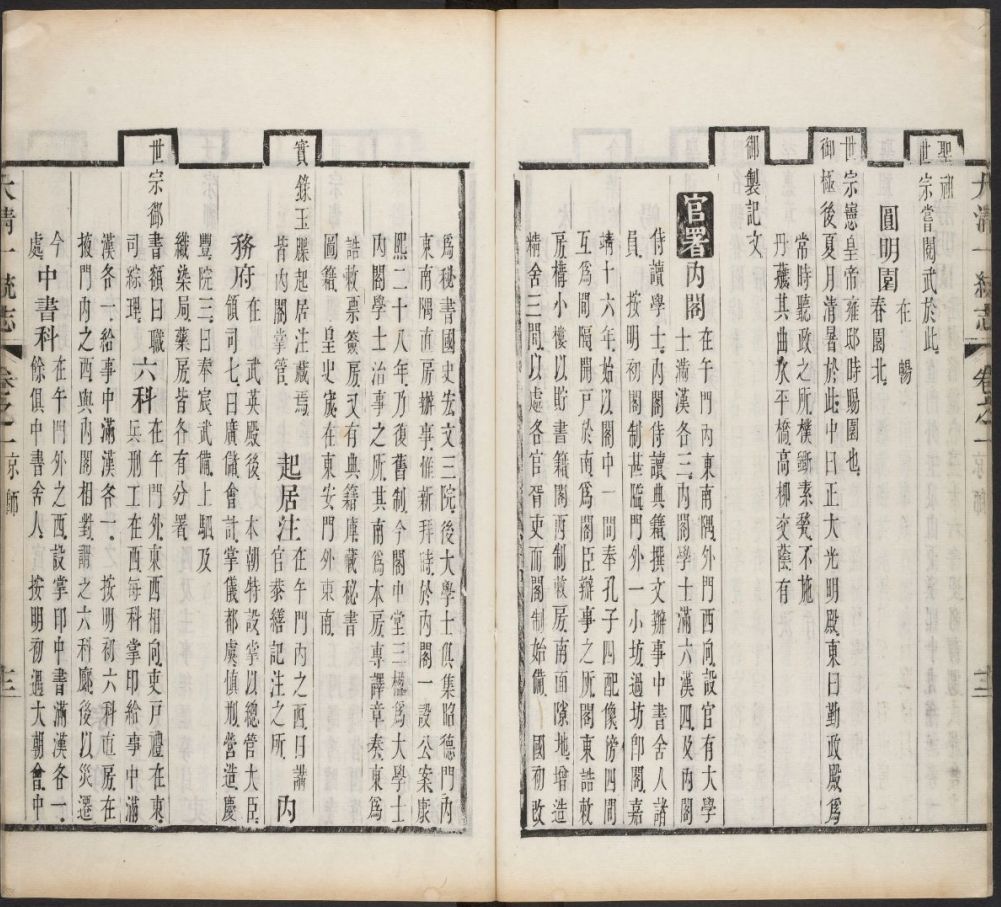 大清一統志 卷之一 京師 十二
聖祖
世宗嘗閱武於此
圓明園在暢春園北
世宗憲皇帝雍邸時賜園也
御極後夏月清暑於此中曰正大光明殿東曰勤政殿為
常時聽政之所樸斲素甃不施
丹雘其曲水平橋高柳交蔭有
御製記文
官署內閣在午門內東南隅外門西向設官有大學
士滿漢各三內閣學士滿六漢四及內閣
侍讀學士內閣侍讀典籍撰文辦事中書舍人諸
員 按明初閣制甚隘門外一小坊過坊即閣嘉
靖十六年始以閣中一間奉孔子四配像傍四間
互為間隔開戶於南為閣臣辦事之所閣東誥敕
房構小樓以貯書籍閣西制敕房南面隙地增造
精舍三間以處各官胥吏而閣制始備 國初改
為秘書國史宏文三院後大學士俱集昭德門內
東南隅直房辦事惟新拜時於內閣一設公案康
熙二十八年乃復舊制今閣中堂三楹為大學士
內閣學士治事之所其南為本房專譯章奏東為
誥敕票簽房又有典籍庫藏秘書
圖籍 皇史宬在東安門外東南
實錄玉牒起居注藏焉 起居注在午門內之西曰講
皆內閣掌管 官恭繕記注之所 內
務府在 武英殿後 本朝特設掌以總管大臣
領司七曰廣儲會計掌儀都虞慎刑營造慶
豐院三曰奉宸武備上駟及
織染局藥房皆各有分署
世宗御書額曰職 六科在午門外東西相向吏戶禮在東
司綜理 兵刑工在西每科掌印給事中滿
漢各一給事中滿漢各一 按明初六科直房在
掖門內之西與內閣相對謂之六科廊後以災遷
今 中書科在午門外之西設掌印中書滿漢各一
處 餘俱中書舍人 按明初遇大朝會中
大清一統志 卷之一 京師 十三